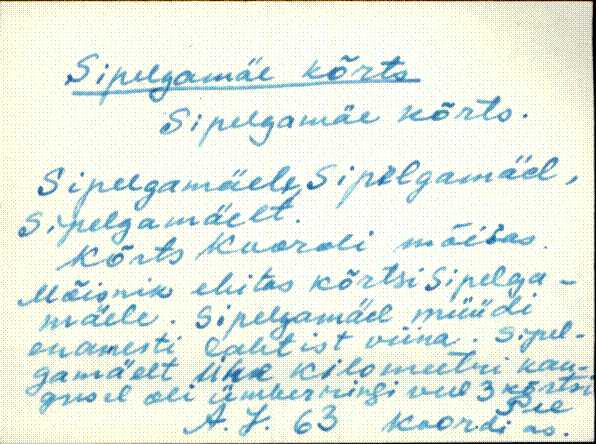 Sipelgamäe kõrts
Sipelgamäe kõrts.
Sipelgamäele, Sipelgamäel,
Sipelgamäelt.
Kõrts Koordi mõisas.
Mõisnik ehitas kõrtsi Sipelga-
mäele. Sipelgamäel müüdi
enamesti lahtist viina. Sipel-
gamäelt ühe kilomeetri kau-
gusel oli ümberringi veel 3 kõrtsi
A. J. 63 Koordi as.